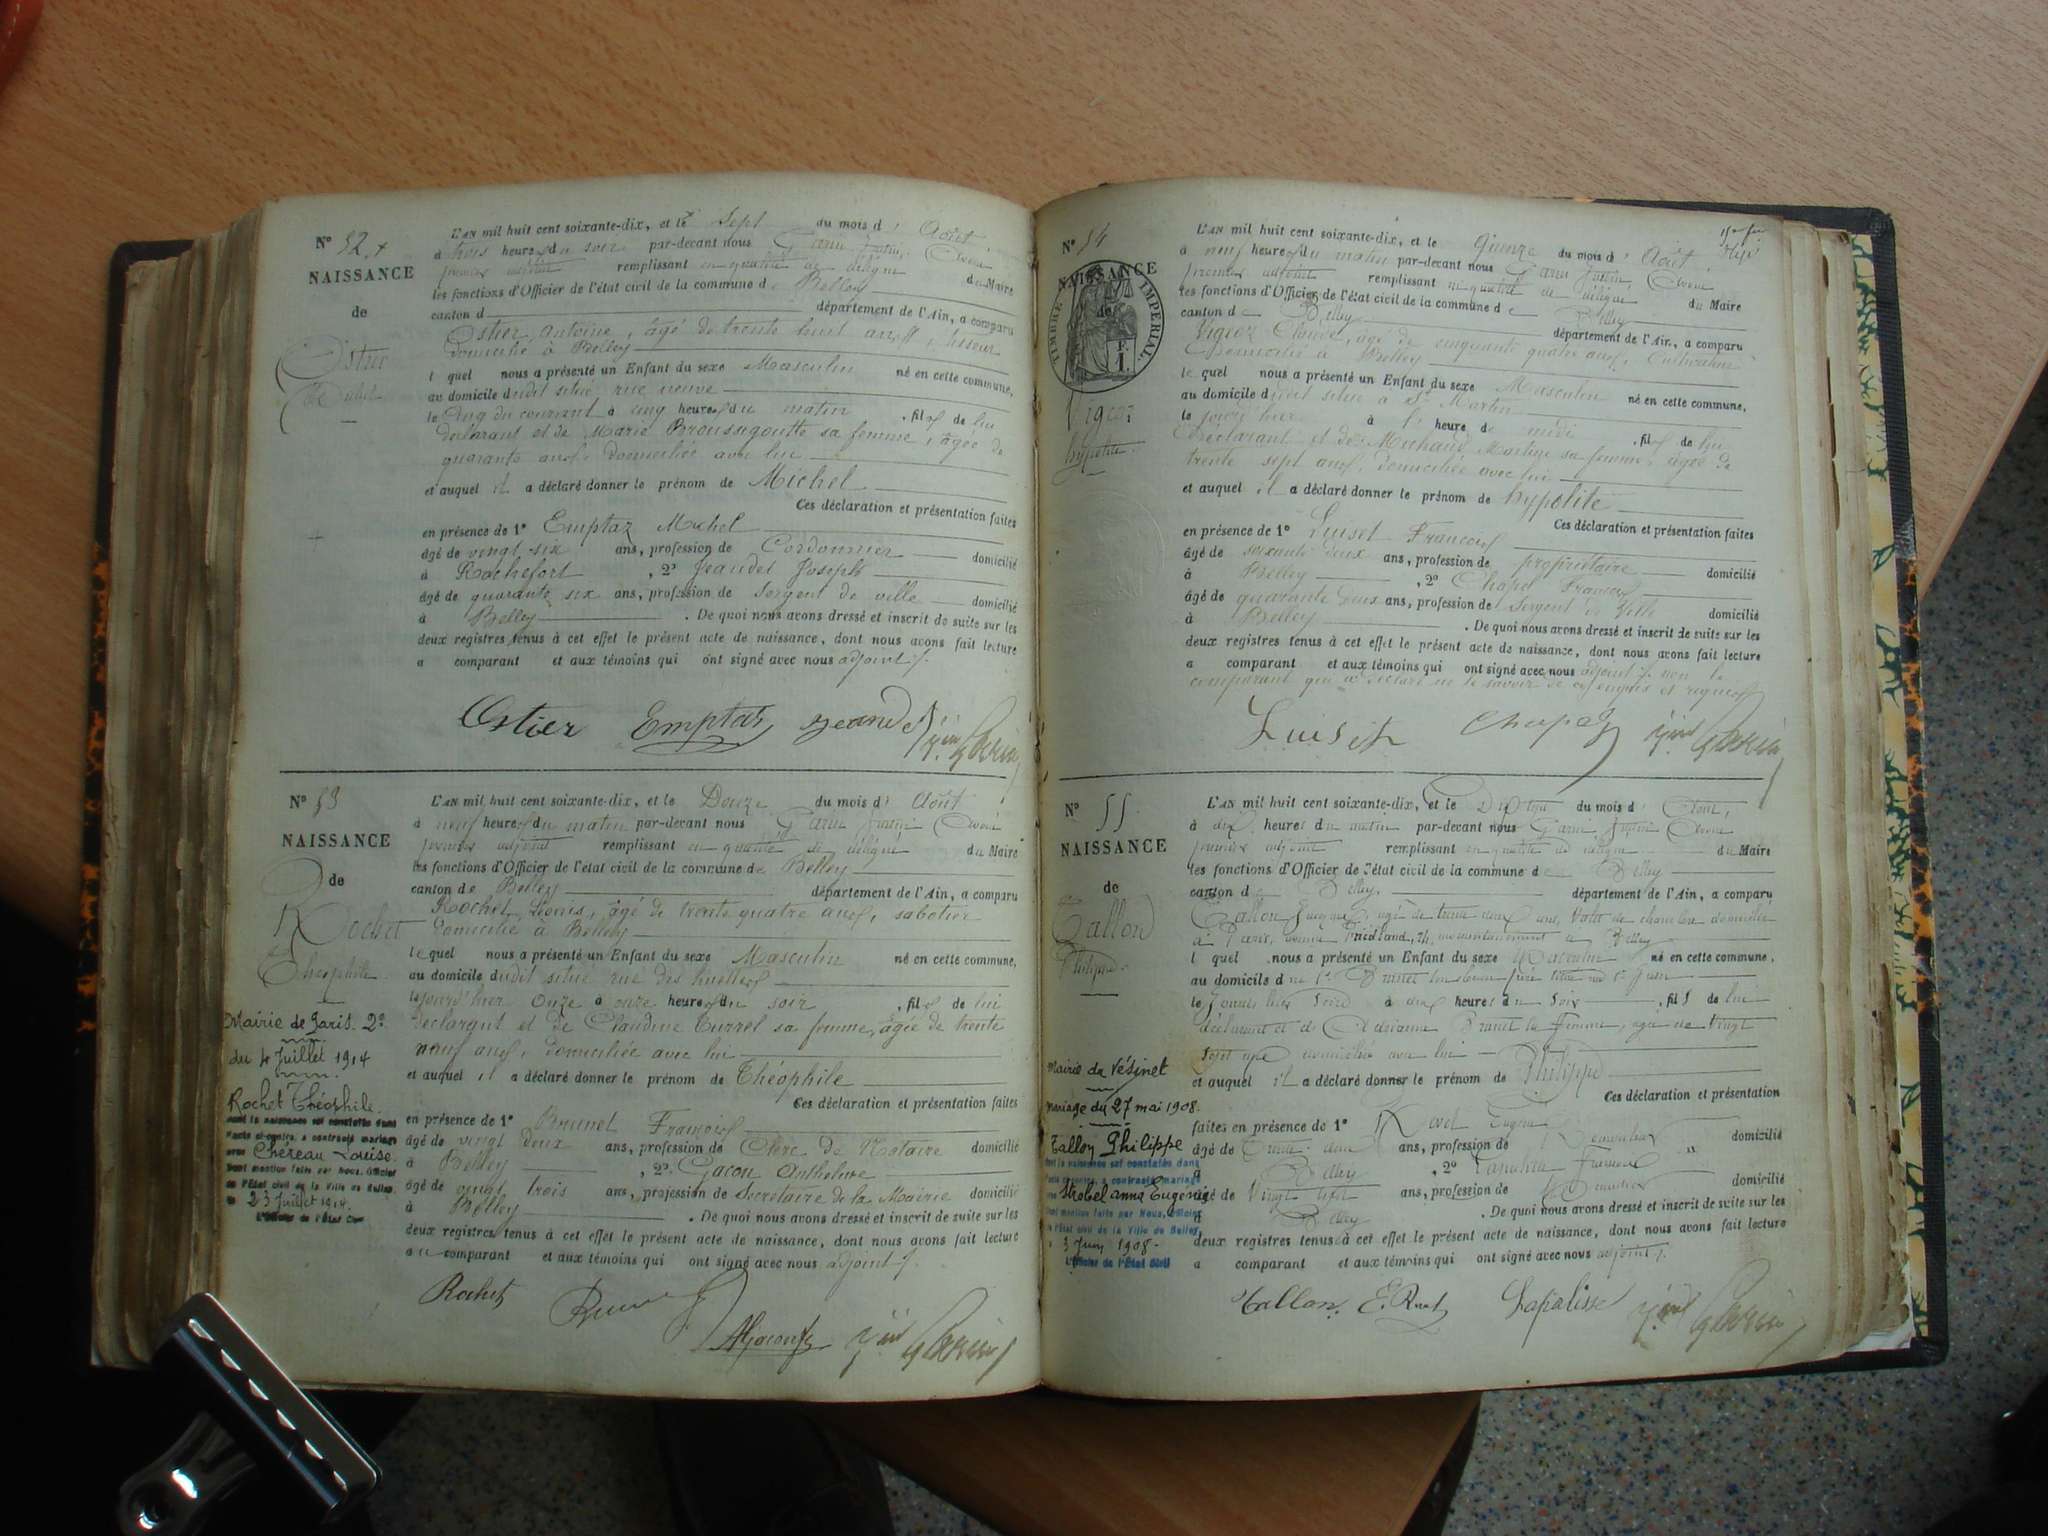 N° 52
NAISSANCE
de
Ostier
Michel
L'AN mil huit cent soixante-dix, et le Sept du mois d' Août
à trois heures du soir par-devant nous Garin Justin, Avoué
premier adjoint remplissant en qualité de délégué du Maire
les fonctions d'Officier de l'état civil de la commune de Belley
canton d département de l'Ain, a comparu
Ostier Antoine, âgé de trente huit ans,
domicilié à Belley
lequel nous a présenté un Enfant du sexe Masculin né en cette commune,
au domicile dudit situé rue neuve
le cinq du courant à cinq heures du matin, fils de lui
déclarant et de Marie Broussigoutte sa femme, âgée de
quarante ans, domiciliée avec lui
et auquel il a déclaré donner le prénom de Michel
Ces déclaration et présentation faites
en présence de 1° Emptaz Michel
âgé de vingt six ans, profession de Cordonnier domicilié
à Rochefort, 2° Jeandet Joseph
âgé de quarante six ans, profession de Sergent de ville domicilié
à Belley. De quoi nous avons dressé et inscrit de suite sur les
deux registres tenus à cet effet le présent acte de naissance, dont nous avons fait lecture
a comparant et aux témoins qui ont signé avec nous adjoint
Ostier Emptaz Jeandet Jin Garin
N° 53
NAISSANCE
de
Rochet
Théophile
Mairie de Paris. 2e
du 4 Juillet 1914
Rochet Théophile
dont la naissance est constatée dans
l'acte ci-contre, a contracté mariage
avec Chéreau Louise.
Dont mention faite par Nous, Officier
de l'État civil de la Ville de Belley,
le 23 Juillet 1914.
L'Officier de l'État Civil
L'AN mil huit cent soixante-dix, et le Douze du mois d' Août
à neuf heures du matin par-devant nous Garin Justin Avoué
premier adjoint remplissant en qualité de délégué du Maire
les fonctions d'Officier de l'état civil de la commune de Belley
canton de Belley département de l'Ain, a comparu
Rochet Louis, âgé de trente quatre ans, sabotier
domicilié à Belley
lequel nous a présenté un Enfant du sexe Masculin né en cette commune,
au domicile dudit situé rue des
le jourd'hier onze à onze heures du soir, fils de lui
déclarant et de Claudine Turrel sa femme, âgée de trente
neuf ans, domiciliée avec lui
et auquel il a déclaré donner le prénom de Théophile
Ces déclaration et présentation faites
en présence de 1° Brunet François
âgé de vingt deux ans, profession de Clerc de Notaire domicilié
à Belley, 2° Gacon Anthelme
âgé de vingt trois ans, profession de Secrétaire de la Mairie domicilié
à Belley. De quoi nous avons dressé et inscrit de suite sur les
deux registres tenus à cet effet le présent acte de naissance, dont nous avons fait lecture
au comparant et aux témoins qui ont signé avec nous adjoint
Rochet Brunet AGacon Jin Garin
N° 54
NAISSANCE
de
TIMBRE IMPÉRIAL.
F.
1.
Vigeoz
hypolite
L'AN mil huit cent soixante-dix, et le Quinze du mois d' Août
à neuf heures du matin par-devant nous Garin Justin, Avoué
premier adjoint remplissant en qualité de délégué du Maire
les fonctions d'Officier de l'état civil de la commune de Belley
canton de Belley département de l'Ain, a comparu
Vigeoz Claude, âgé de cinquante quatre ans, Cultivateur
domicilié à Belley
lequel nous a présenté un Enfant du sexe Masculin né en cette commune,
au domicile dudit situé à St Martin
le jourd'hier à l' heure de midi, fils de lui
déclarant et de Michaud Martine sa femme, âgée de
trente sept ans, domiciliée avec lui
et auquel il a déclaré donner le prénom de hypolite
Ces déclaration et présentation faites
en présence de 1° Luiset François
âgé de soixante deux ans, profession de propriétaire domicilié
à Belley, 2° Chapel François
âgé de quarante ans, profession de Sergent de Ville domicilié
à Belley. De quoi nous avons dressé et inscrit de suite sur les
deux registres tenus à cet effet le présent acte de naissance, dont nous avons fait lecture
a comparant et aux témoins qui ont signé avec nous adjoint, non le
comparant qui a déclaré ne le savoir de ce enquis et requis
Luiset Jin Garin
N° 55
NAISSANCE
de
Tallon
Philippe
Mairie du Vésinet
Mariage du 27 mai 1908.
Tallon Philippe
dont la naissance est constatée dans
l'acte ci-contre, a contracté mariage
avec Strobel Anna Eugénie
Dont mention faite par Nous, Officier
de l'État civil de la Ville de Belley,
3 Juin 1908.
L'Officier de l'État Civil
L'AN mil huit cent soixante-dix, et le du mois d' Août,
à dix heures du matin par-devant nous Garin Justin Avoué
premier adjoint remplissant en qualité de délégué du Maire
les fonctions d'Officier de l'état civil de la commune de Belley
canton de Belley. département de l'Ain, a comparu
Tallon Eugène, âgé de trente deux ans, Valet de chambre domicilié
à Paris, avenue Friedland, 24, momentanément à Belley
lequel nous a présenté un Enfant du sexe Masculin né en cette commune,
au domicile de
le à heures du soir, fils de lui
déclarant et de Brunet sa femme, âgée de vingt
sept ans domiciliée avec lui
et auquel il a déclaré donner le prénom de Philippe
Ces déclaration et présentation
faites en présence de 1° Eugène
âgé de trente deux ans, profession de domicilié
à Belley, 2°
âgé de vingt sept ans, profession de domicilié
à Belley. De quoi nous avons dressé et inscrit de suite sur les
deux registres tenus à cet effet le présent acte de naissance, dont nous avons fait lecture
a comparant et aux témoins qui ont signé avec nous adjoint
Tallon. Lapalisse Jin Garin